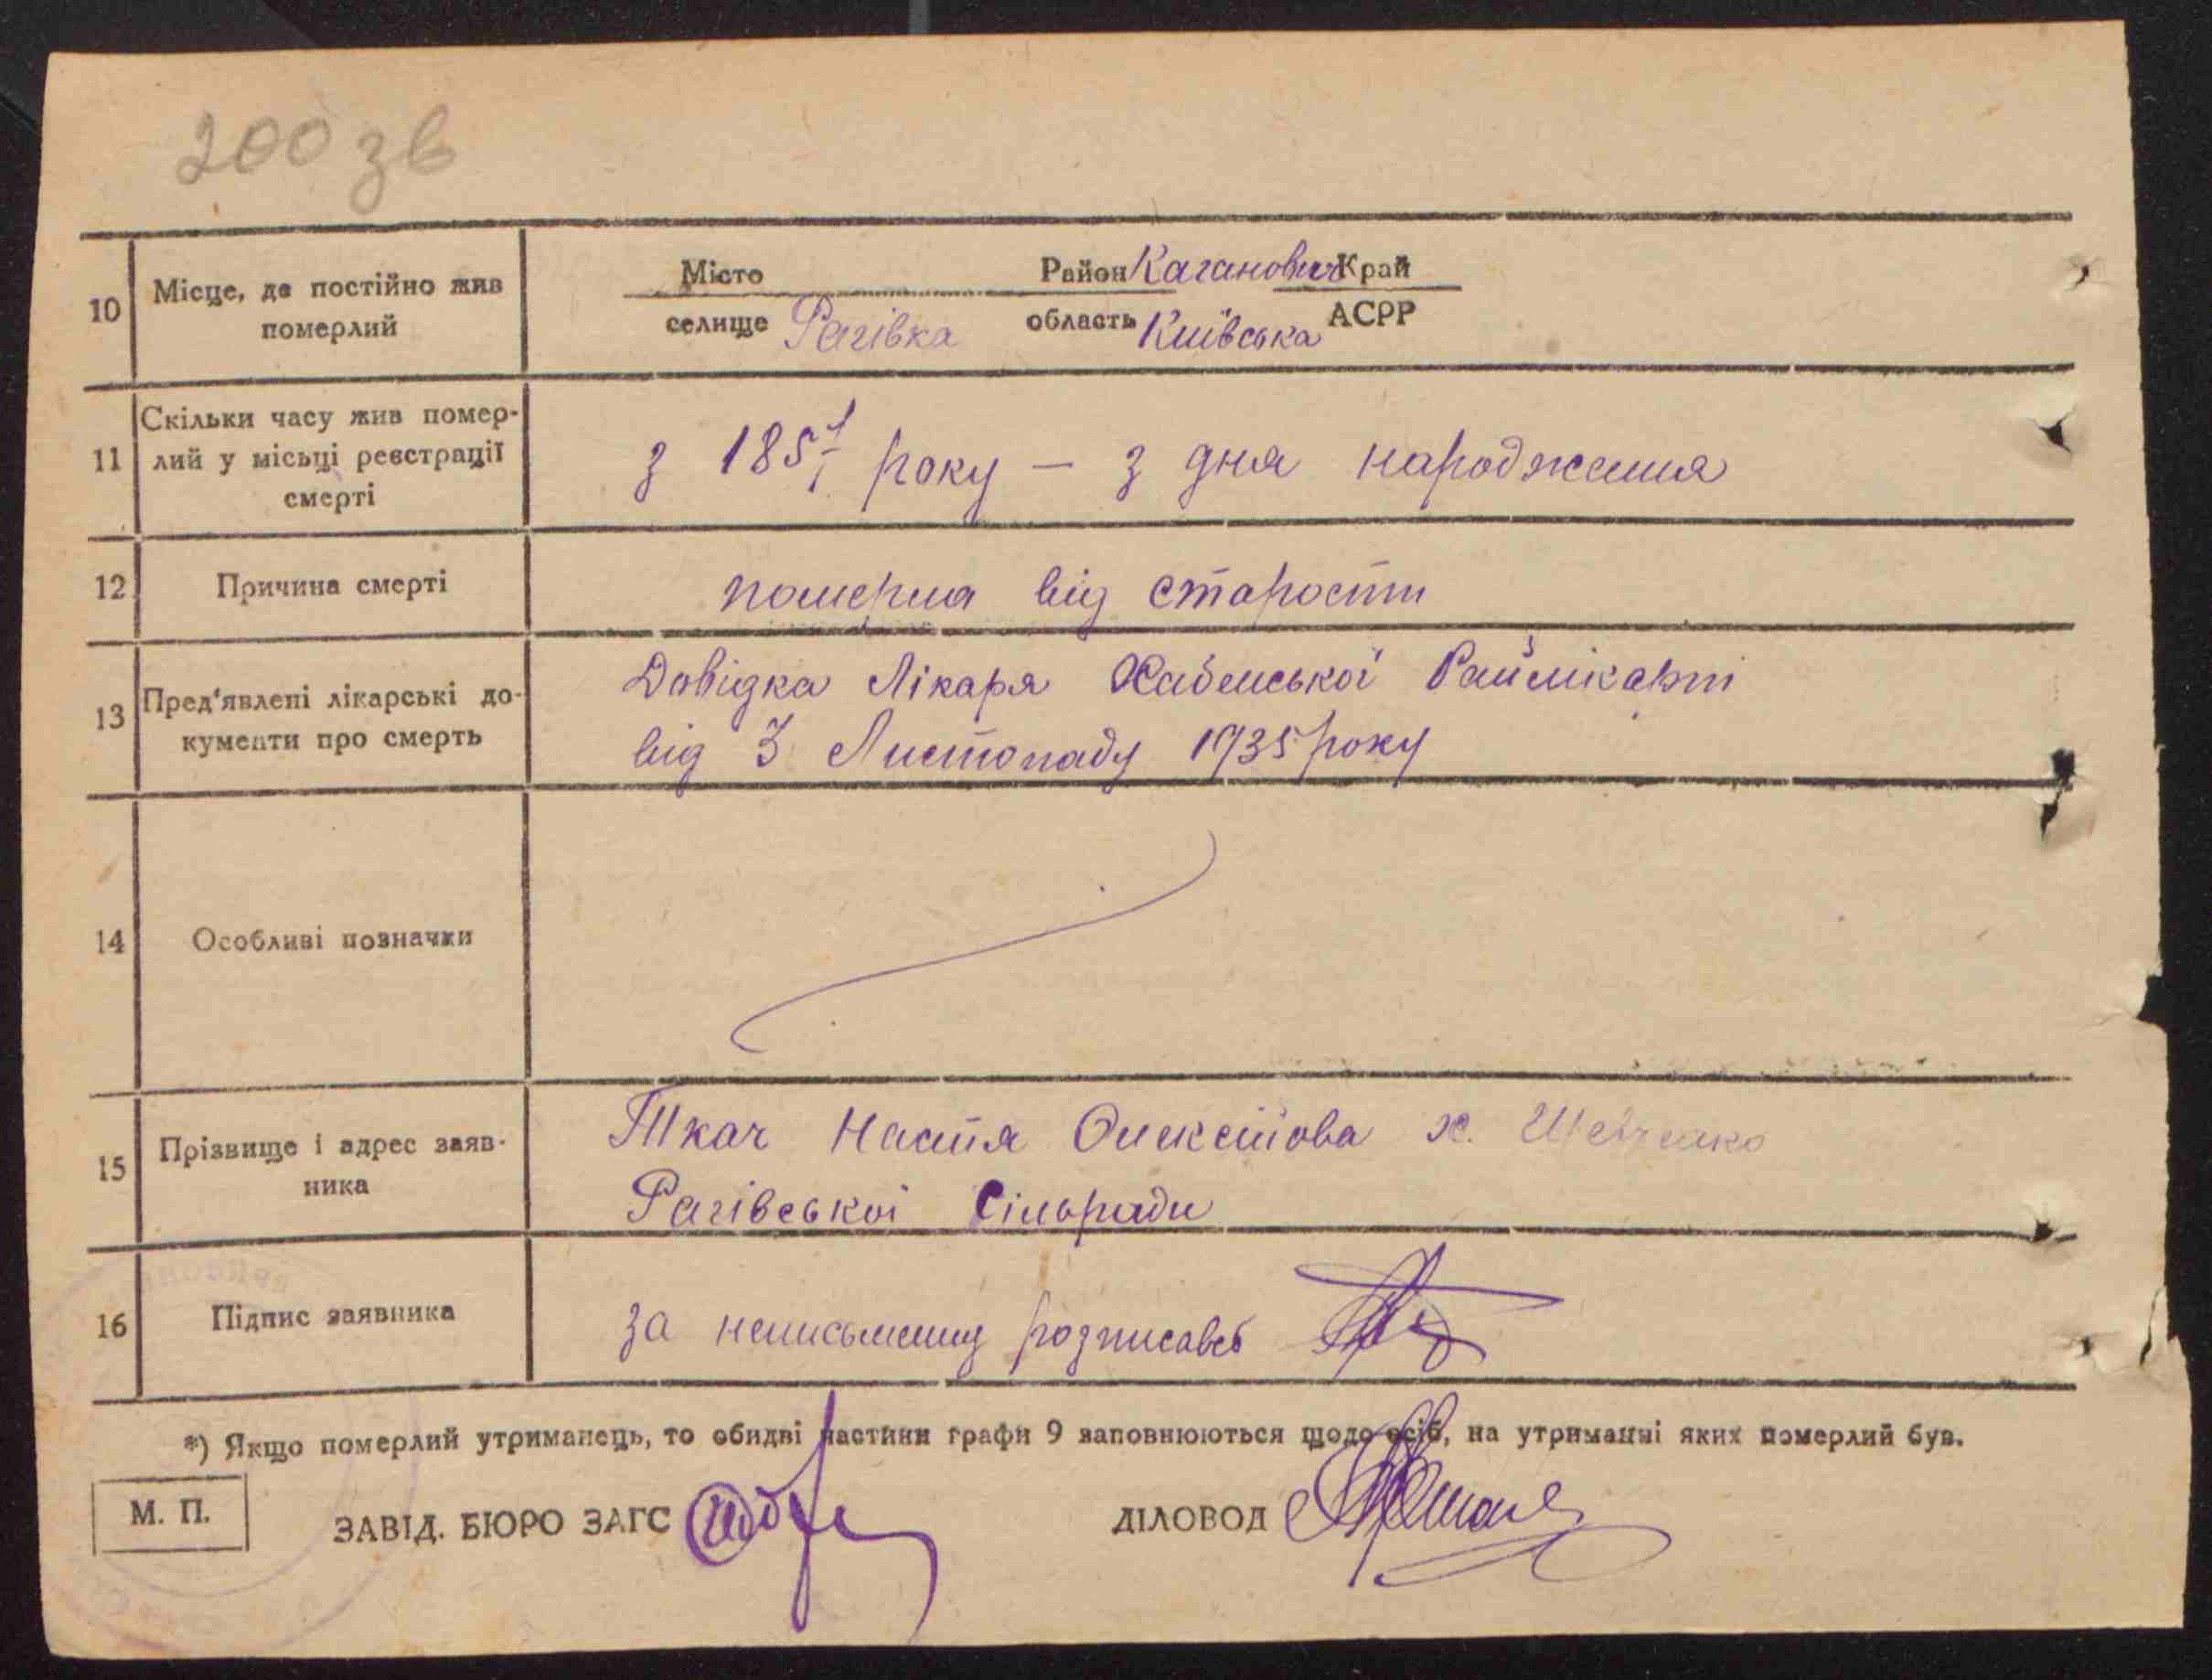 200 зв
10 Місце, де постійно жив померлий
Місто Район Каганович Край
селище Рагівка область Київська АСРР
11 Скільки часу жив помер-
лий у місьці реєстрації
смерті
з 1857 року — з дня народження
12 Причина смерті
померла від старости
13 Пред'явлені лікарські до-
кументи про смерть
Довідка Лікаря Хабенської Райлікарні
від 3 Листопаду 1935 року
14 Особливі позначки
15 Прізвище і адрес заяв-
ника
Ткач Настя Олексіїова х. Шевченко
Рагівської Сільради
16 Підпис заявника
за неписьменну розписавсь
*) Якщо померлий утриманець, то обидві частини графи 9 заповнюються щодо осіб, на утриманні яких померлий був.
М. П.
ЗАВІД. БЮРО ЗАГС ДІЛОВОД